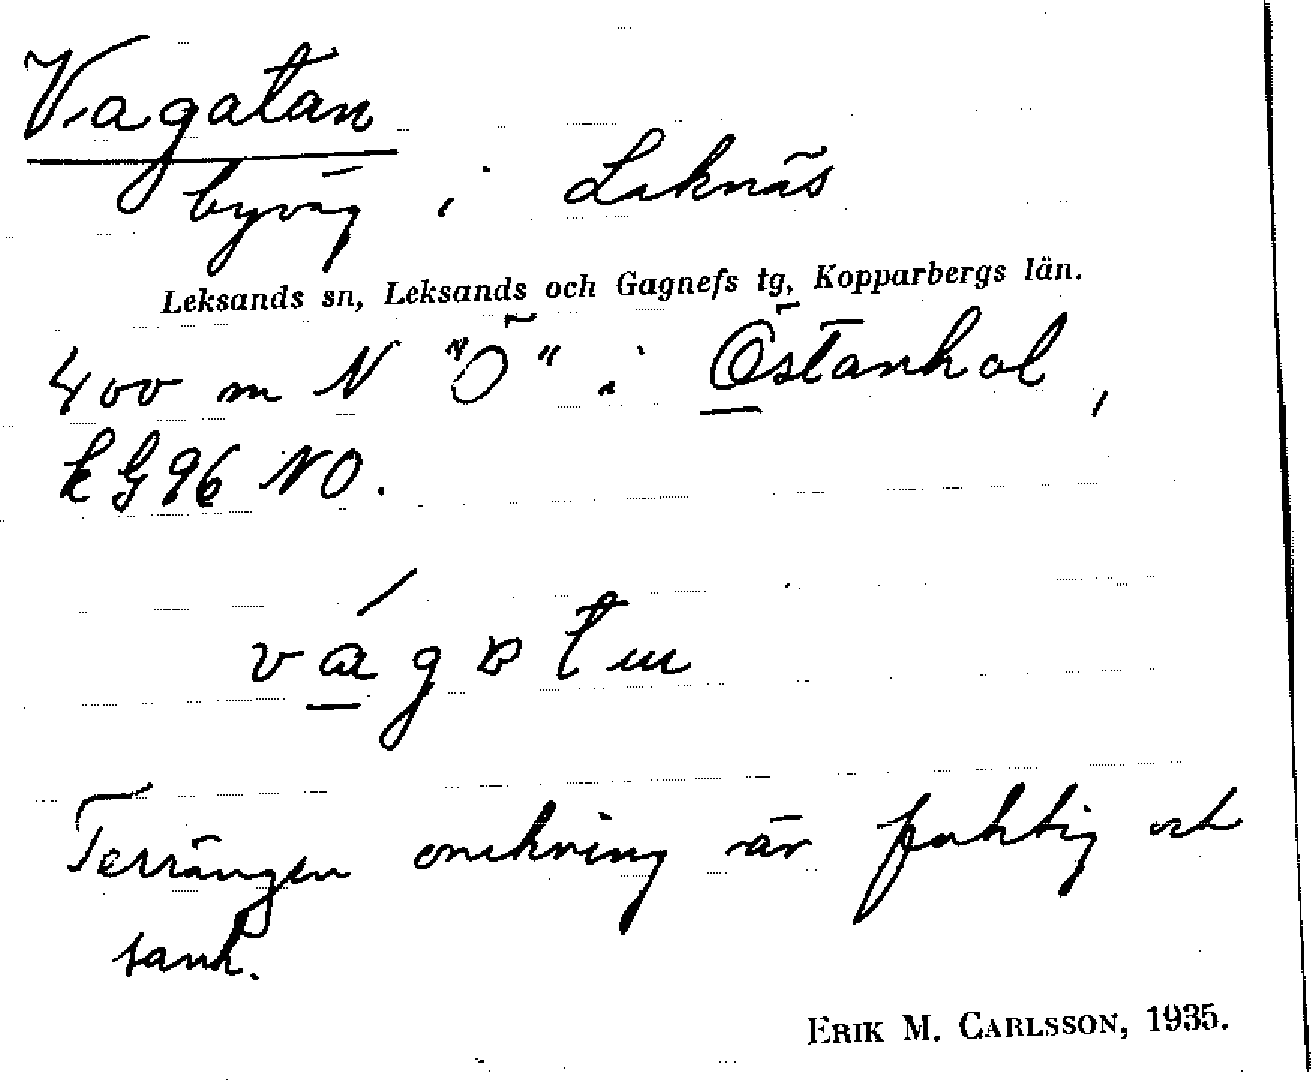 Vagatan
byväg i Laknäs
Leksands sn, Leksands och Gagnefs tg, Kopparbergs län.
400 m N "Ö" i Östanhol,
k G 96 NO.
vágɒtɯ
Terrängen omkring är fuktig och
sank.
ERIK M. CARLSSON, 1935.